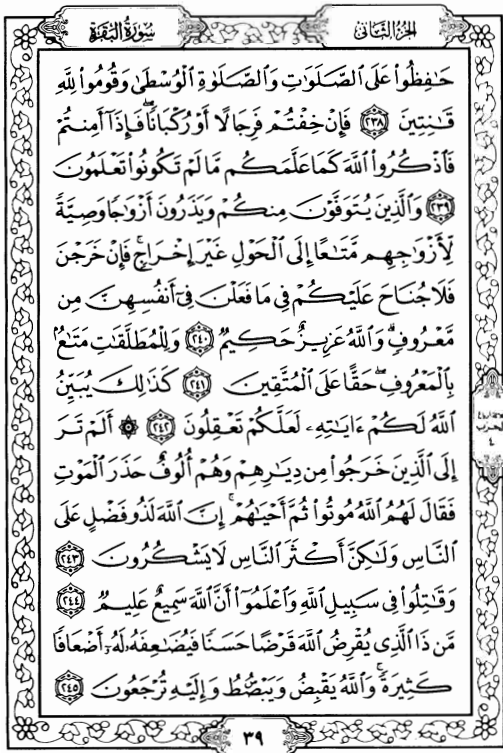 الجزء الثاني
سورة البقرة
حَـٰفِظُوا۟ عَلَى ٱلصَّلَوَٰتِ وَٱلصَّلَوٰةِ ٱلْوُسْطَىٰ وَقُومُوا۟ لِلَّهِ
قَـٰنِتِينَ ﴿٢٣٨﴾ فَإِنْ خِفْتُمْ فَرِجَالًا أَوْ رُكْبَانًا ۖ فَإِذَآ أَمِنتُمْ
فَٱذْكُرُوا۟ ٱللَّهَ كَمَا عَلَّمَكُم مَّا لَمْ تَكُونُوا۟ تَعْلَمُونَ
﴿٢٣٩﴾ وَٱلَّذِينَ يُتَوَفَّوْنَ مِنكُمْ وَيَذَرُونَ أَزْوَٰجًا وَصِيَّةً
لِّأَزْوَٰجِهِم مَّتَـٰعًا إِلَى ٱلْحَوْلِ غَيْرَ إِخْرَاجٍ ۚ فَإِنْ خَرَجْنَ
فَلَا جُنَاحَ عَلَيْكُمْ فِى مَا فَعَلْنَ فِىٓ أَنفُسِهِنَّ مِن
مَّعْرُوفٍ ۗ وَٱللَّهُ عَزِيزٌ حَكِيمٌ ﴿٢٤٠﴾ وَلِلْمُطَلَّقَـٰتِ مَتَـٰعٌۢ
بِٱلْمَعْرُوفِ ۖ حَقًّا عَلَى ٱلْمُتَّقِينَ ﴿٢٤١﴾ كَذَٰلِكَ يُبَيِّنُ
ٱللَّهُ لَكُمْ ءَايَـٰتِهِۦ لَعَلَّكُمْ تَعْقِلُونَ ﴿٢٤٢﴾ ۞ أَلَمْ تَرَ
إِلَى ٱلَّذِينَ خَرَجُوا۟ مِن دِيَـٰرِهِمْ وَهُمْ أُلُوفٌ حَذَرَ ٱلْمَوْتِ
فَقَالَ لَهُمُ ٱللَّهُ مُوتُوا۟ ثُمَّ أَحْيَـٰهُمْ ۚ إِنَّ ٱللَّهَ لَذُو فَضْلٍ عَلَى
ٱلنَّاسِ وَلَـٰكِنَّ أَكْثَرَ ٱلنَّاسِ لَا يَشْكُرُونَ ﴿٢٤٣﴾
وَقَـٰتِلُوا۟ فِى سَبِيلِ ٱللَّهِ وَٱعْلَمُوٓا۟ أَنَّ ٱللَّهَ سَمِيعٌ عَلِيمٌ ﴿٢٤٤﴾
مَّن ذَا ٱلَّذِى يُقْرِضُ ٱللَّهَ قَرْضًا حَسَنًا فَيُضَـٰعِفَهُۥ لَهُۥٓ أَضْعَافًا
كَثِيرَةً ۚ وَٱللَّهُ يَقْبِضُ وَيَبْصُۜطُ وَإِلَيْهِ تُرْجَعُونَ ﴿٢٤٥﴾
٣٩